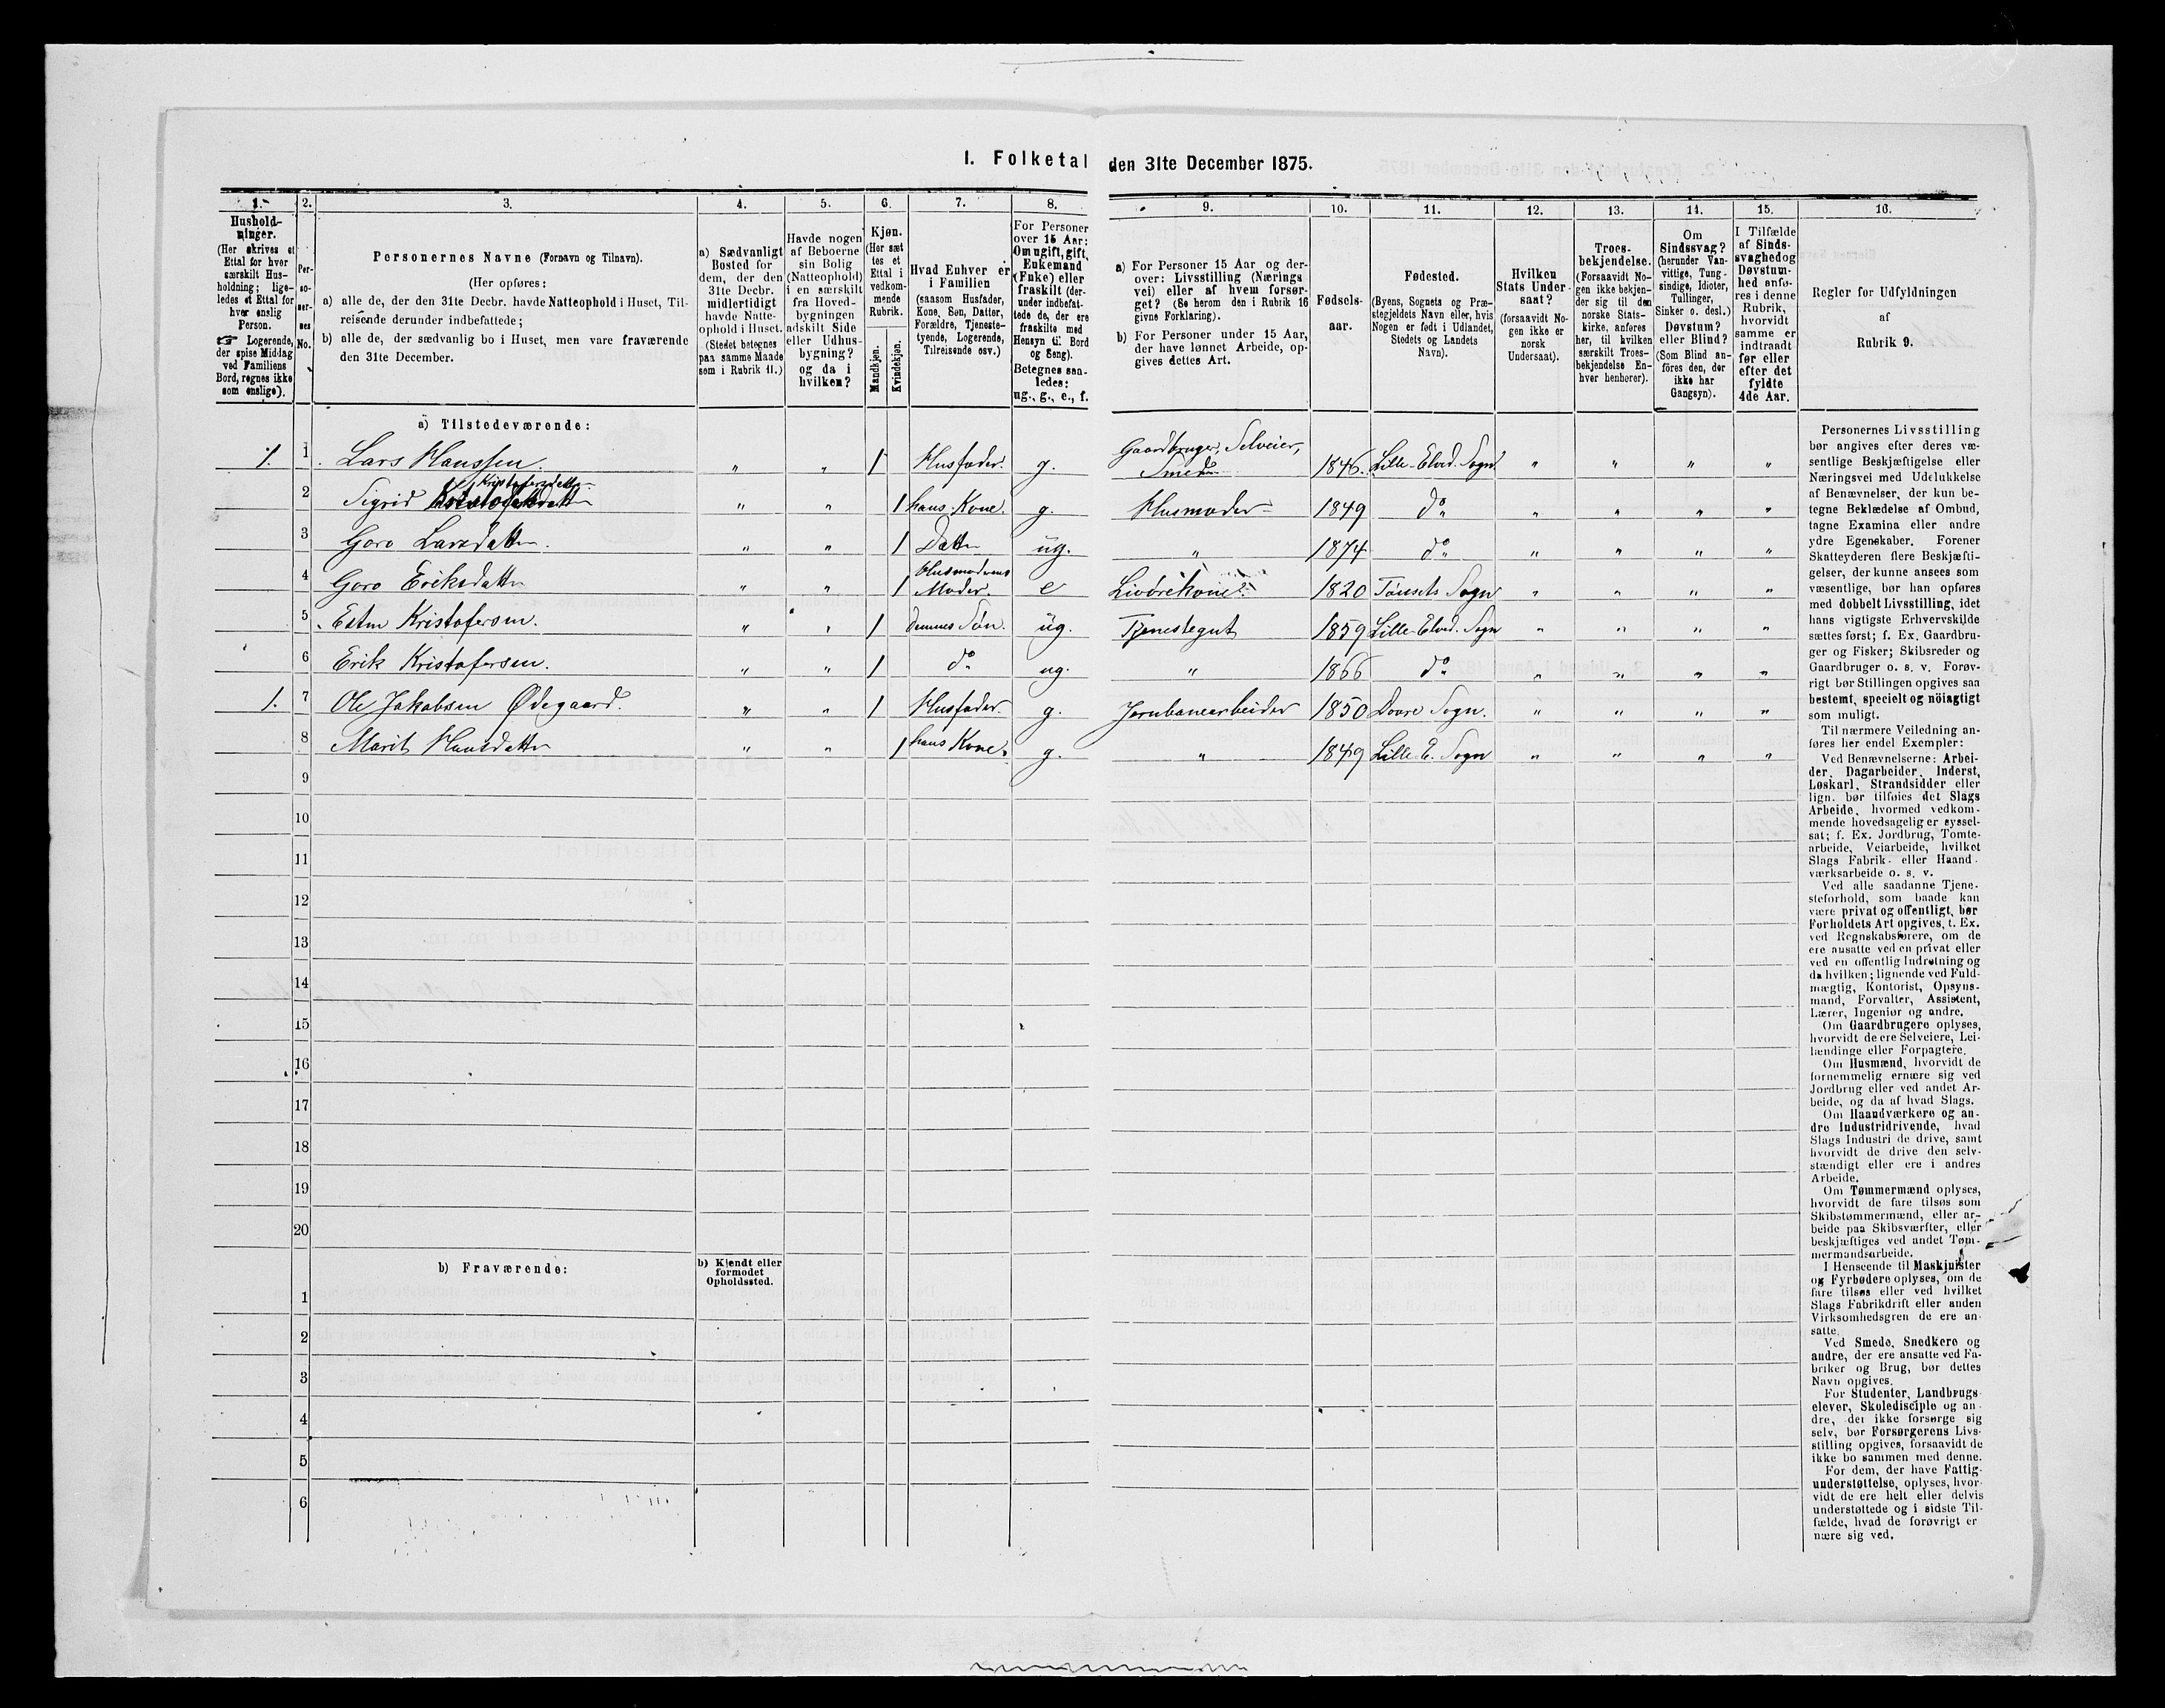 I. Folketal den 31te December 1875.
1. 2. 3. 4. 5. 6. 7. 8. 9. 10. 11. 12. 13. 14. 15. 16.
Hushold-
ninger.
(Her skrives et
Ettal for hver
særskilt Hus-
holdning; lige-
ledes et Ettal for
hver enslig
Person.
☞ Logerende,
der spise Middag
ved Familiens
Bord, regnes ikke
som enslige).
Per-
so-
ner-
nes
No.
Personernes Navne (Fornavn og Tilnavn).
(Her opføres:
a) alle de, der den 31te Decbr. havde Natteophold i Huset, Til-
reisende derunder indbefattede;
b) alle de, der sædvanlig bo i Huset, men vare fraværende
den 31te December.
a) Sædvanligt
Bosted for
dem, der den
31te Decbr.
midlertidigt
havde Natte-
ophold i Huset.
(Stedet betegnes
paa samme Maade
som i Rubrik 11.)
Havde nogen
af Beboerne
sin Bolig
(Natteophold)
i en særskilt
fra Hoved-
bygningen
adskilt Side
eller Udhus-
bygning?
og da i
hvilken?
Kjøn.
(Her sæt
tes et
Ettal i
vedkom-
mende
Rubrik.
Mandkjøn.
Kvindekjøn.
Hvad Enhver er
i Familien
(saasom Husfader,
Kone, Søn, Datter,
Forældre, Tjeneste-
tyende, Logerende,
Tilreisende osv.)
For Personer
over 15 Aar:
Om ugift, gift,
Enkemand
(Enke) eller
fraskilt (der-
under indbefat-
tede de, der ere
fraskilte med
Hensyn til Bord
og Seng).
Betegnes saa-
ledes:
ug., g., e., f.
a) For Personer 15 Aar og der-
over: Livsstilling (Nærings
vei) eller af hvem forsør-
get? (Se herom den i Rubrik 16
givne Forklaring).
b) For Personer under 15 Aar,
der have lønnet Arbeide, op-
gives dettes Art.
Fødsels-
aar.
Fødested.
(Byens, Sognets og Præ-
stegjeldets Navn eller, hvis
Nogen er født i Udlandet,
Stedets og Landets
Navn).
Hvilken
Stats Under-
saat?
(forsaavidt No-
gen ikke er
norsk
Undersaat).
Troes-
bekjendelse.
(Forsaavidt No-
gen ikke bekjen-
der sig til den
norske Stats-
kirke, anføres
her, til hvilken
særskilt Troes-
bekjendelse En-
hver henhører).
Om
Sindssvag?
(herunder Van-
vittige, Tung-
sindige, Idioter,
Tullinger,
Sinker o. desl.)
Døvstum?
eller Blind?
(Som Blind an-
föres den, der
ikke har
Gangsyn).
I Tilfælde
af Sinds-
svaghed og
Døvstum-
hed anfø-
res i denne
Rubrik,
hvorvidt
samme er
indtraadt
før eller
efter det
fyldte
4de Aar.
Regler for Udfyldningen
af
Rubrik 9.
a) Tilstedeværende:
1. 1 Lars Hanssen. " " 1 Husfader. g. Gaardbruger, Selveier, Smed 1846. Lille-Elvd. Sogn. " " " "
2 Sigrid Kristofersdatter " " 1 hans Kone. g. Husmoder 1849 do " " " "
3 Goro Larsdatter. " " 1 Datter ug. " 1874 do " " " "
4 Goro Eriksdatter " " 1 Husmoderens Moder. e Livørekone 1820 Tønsets Sogn " " " "
5 Esten Kristofersen. " " 1 dennes Søn. ug. Tjenestegut 1859 Lille-Elvd. Sogn " " " "
6 Erik Kristofersen. " " 1 do ug. " 1866 do " " " "
1. 7 Ole Jakobsen Ødegaard. " " 1 Husfader. g. Jernbanearbeider 1850 Dovre Sogn. " " " "
8 Marit Hansdatter " " 1 hans Kone. g. " 1849 Lille-E. Sogn " " " "
9
10
11
12
13
14
15
16
17
18
19
20
b) Fraværende:
b) Kjendt eller
formodet
Opholdssted.
1
2
3
4
5
6
Personernes Livsstilling
bør angives efter deres væ-
sentlige Beskjæftigelse eller
Næringsvei med Udelukkelse
af Benævnelser, der kun be-
tegne Beklædelse af Ombud,
tagne Examina eller andre
ydre Egenskaber. Forener
Skatteyderen flere Beskjæfti-
gelser, der kunne ansees som
væsentlige, bør han opføres
med dobbelt Livsstilling, idet
hans vigtigste Erhvervskilde
sættes først; f. Ex. Gaardbru-
ger og Fisker; Skibsreder og
Gaardbruger o. s. v. Forøv-
rigt bør Stillingen opgives saa
bestemt, specielt og nöiagtigt
som muligt.
Til nærmere Veiledning an-
føres her endel Exempler:
Ved Benævnelserne: Arbei-
der, Dagarbeider, Inderst,
Løskarl, Strandsidder eller
lign. bør tilføies det Slags
Arbeide, hvormed vedkom-
mende hovedsagelig er syssel-
sat; f. Ex. Jordbrug, Tomte-
arbeide, Veiarbeide, hvilket
Slags Fabrik- eller Haand-
værksarbeide o. s. v.
Ved alle saadanne Tjene-
steforhold, som baade kan
være privat og offentligt, bør
Forholdets Art opgives, t. Ex.
ved Regnskabsførere, om de
ere ansatte ved en privat eller
ved en offentlig Indretning og
da hvilken; lignende ved Fuld-
mægtig, Kontorist, Opsyns-
mand, Forvalter, Assistent,
Lærer, Ingeniør og andre.
Om Gaardbrugere oplyses,
hvorvidt de ere Selveiere, Lei-
lændinge eller Forpagtere.
Om Husmænd, hvorvidt de
fornemmelig ernære sig ved
Jordbrug eller ved andet Ar-
beide, og da af hvad Slags.
Om Haandværkere og an-
dre Industridrivende, hvad
Slags Industri de drive, samt
hvorvidt de drive den selv-
stændigt eller ere i andres
Arbeide.
Om Tømmermænd oplyses,
hvorvidt de fare tilsøs som
Skibstømmermænd, eller ar-
beide paa Skibsværfter, eller
beskjæftiges ved andet Tøm-
mermandsarbeide.
I Henseende til Maskinister
og Fyrbødere oplyses, om de
fare tilsøs eller ved hvilket
Slags Fabrikdrift eller anden
Virksomhedsgren de ere an-
satte.
Ved Smede, Snedkere og
andre, der ere ansatte ved Fa-
briker og Brug, bør dettes
Navn opgives.
For Studenter, Landbrugs-
elever, Skoledisciple og an-
dre, der ikke forsørge sig
selv, bør Forsørgerens Livs-
stilling opgives, forsaavidt de
ikke bo sammen med denne.
For dem, der have Fattig-
understøttelse, oplyses, hvor-
vidt de ere helt eller delvis
understøttede og i sidste Til-
fælde, hvad de forøvrigt er
nære sig ved.